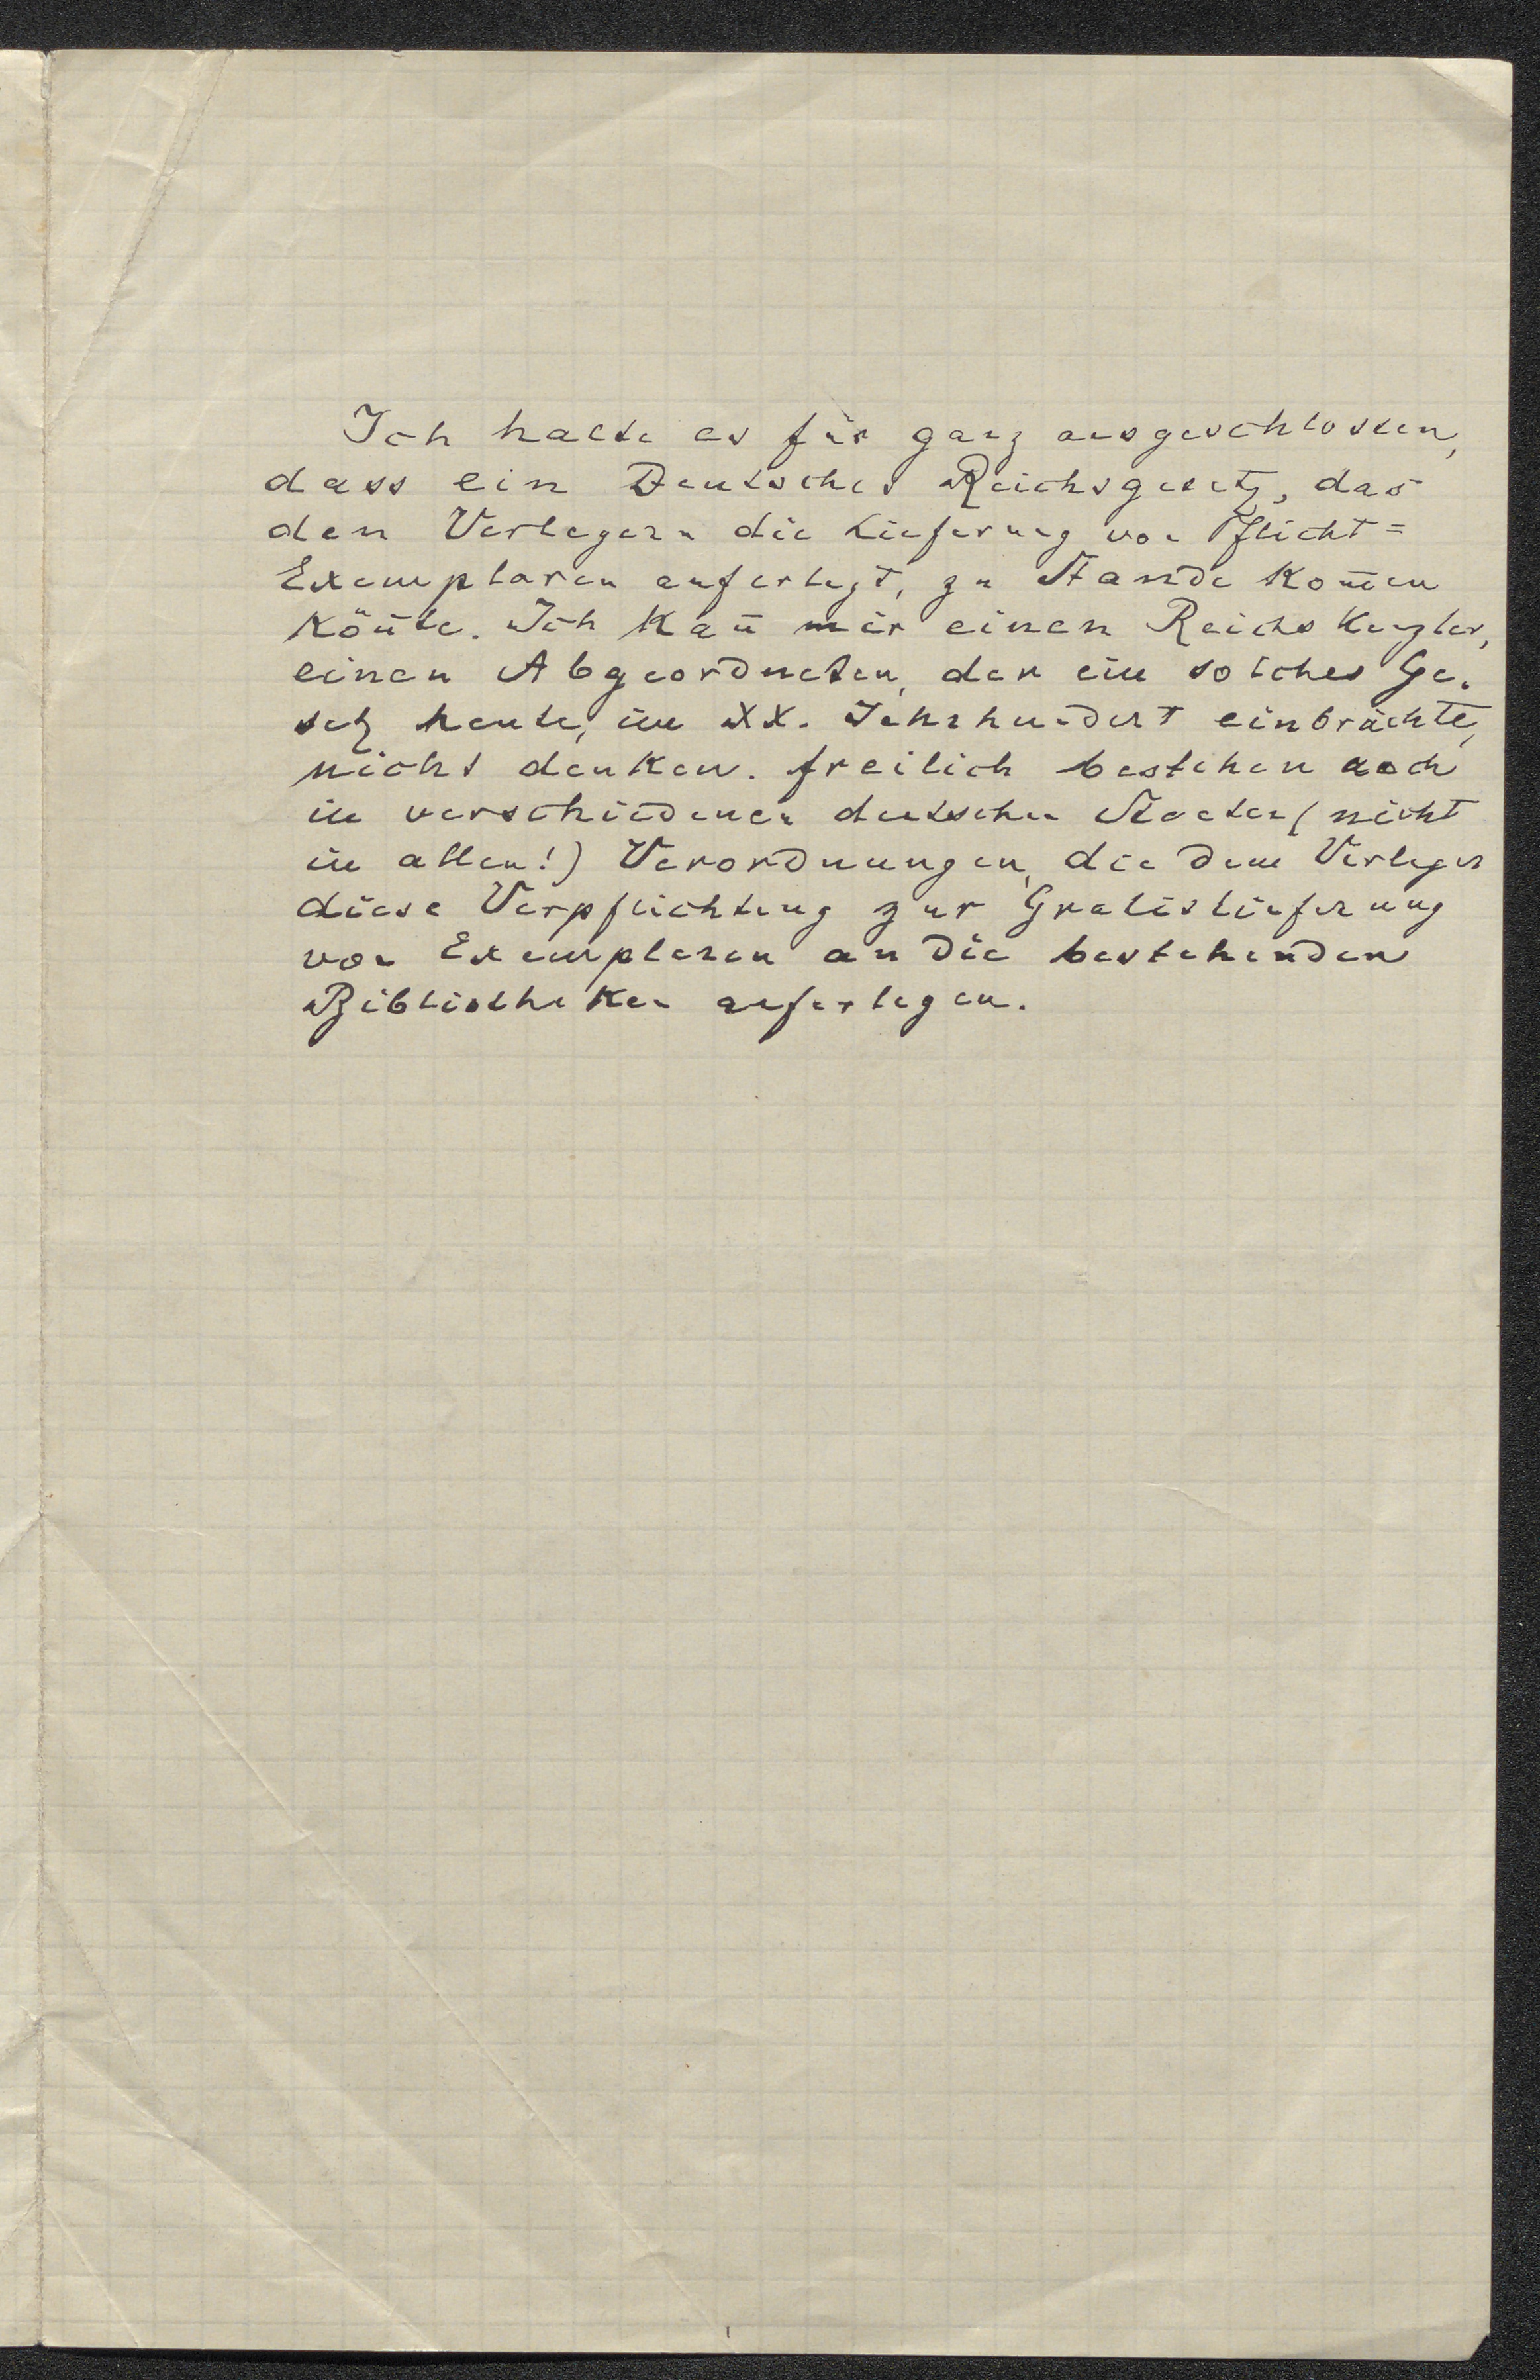 Ich halte es für ganz ausgeschlossen,
dass ein Deutsches Reichsgesetz, das
den Verlegern die Lieferung von Pflicht=
Exemplaren auferlegt, zu Stande kom̄en
kön̄te. Ich kan̄ mir einen Reichskanzler,
einen Abgeordneten, der ein solches Ge-
setz heute, im XX. Jahrhundert einbrächte,
nicht denken. freilich bestehen noch
in verschiedenen deutschen Staaten (nicht
in allen!) Verordnungen, die dem Verleger
diese Verpflichtung zur Gratislieferung
von Exemplaren an die bestehenden
Bibliotheken auferlegen.